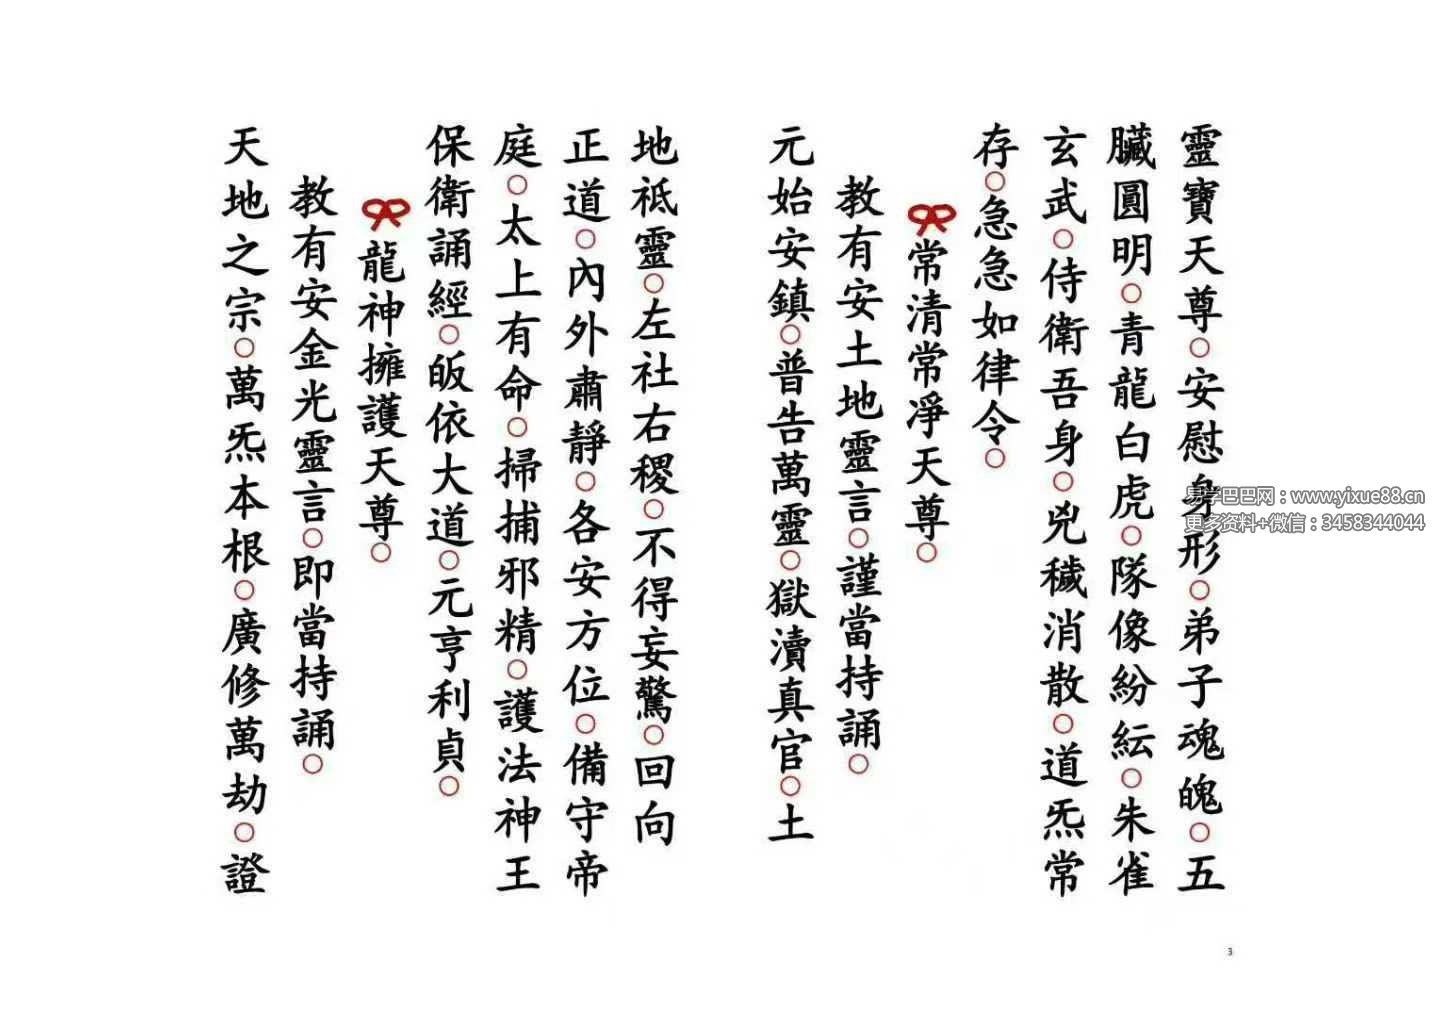 靈寶天尊○安慰身形○弟子魂魄○五
臟圓明○青龍白虎○隊像紛紜○朱雀
玄武○侍衛吾身○兇穢消散○道炁常
存○急急如律令○
常清常淨天尊○
教有安土地靈言○謹當持誦○
元始安鎮○普告萬靈○獄瀆真官○土
地祇靈○左社右稷○不得妄驚○回向
正道○內外肅靜○各安方位○備守帝
庭○太上有命○掃捕邪精○護法神王
保衛誦經○皈依大道○元亨利貞○
龍神擁護天尊○
教有安金光靈言○即當持誦○
天地之宗○萬炁本根○廣修萬劫○證
易学巴巴网：www.yixue88.cn
更多资料+微信：3458344044
3